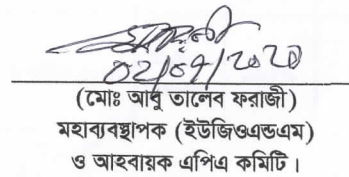 02/07/2020
(মোঃ আবু তালেব ফরাজী)
মহাব্যবস্থাপক (ইউজিওএন্ডএম)
ও আহবায়ক এপিএ কমিটি।